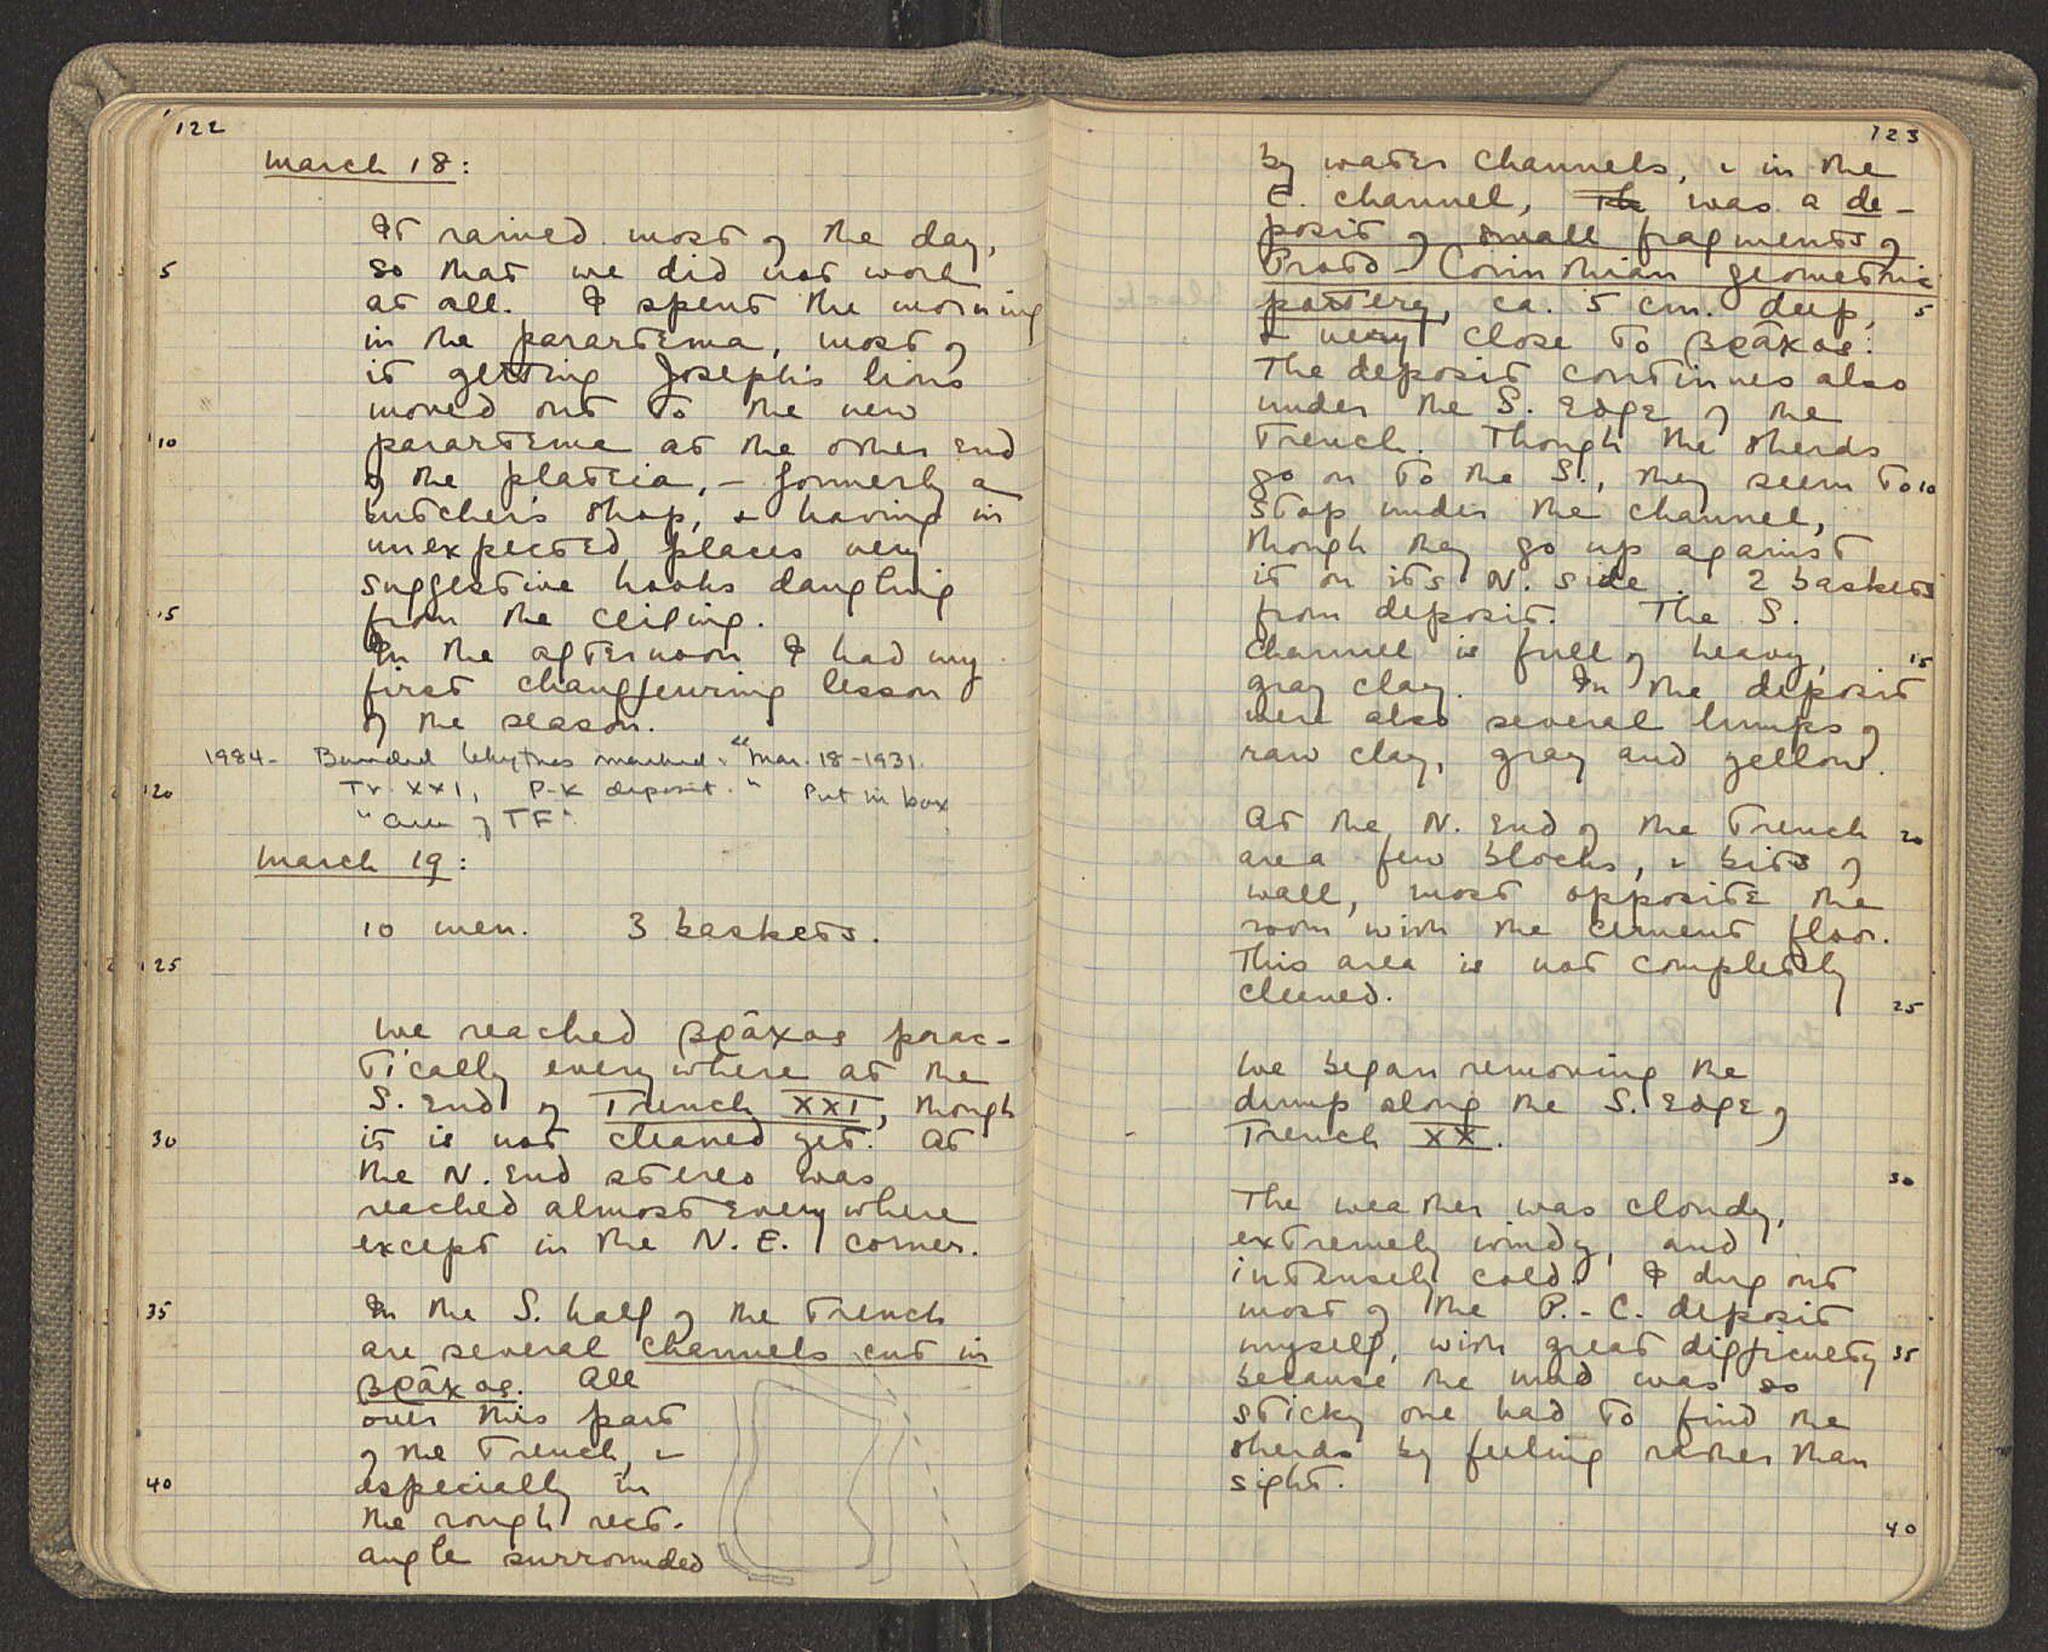 122
March 18:
It rained most of the day,
5 so that we did not work
at all. I spent the morning
in the parartema, most of
it getting Joseph's lions
moved out to the new
10 parartema at the other end
of the plateia, – formerly a
butcher's shop, & having in
unexpected places very
suggestive hooks dangling
15 from the ceiling.
In the afternoon I had my
first chauffeuring lesson
of the season.
1984– lekythos marked: "Mar. 18–1931.
20 Tr. XXI, P-K deposit." Put in box
" of TF"
March 19:
10 men. 3 baskets.
25
We reached βρᾶχος prac-
tically everywhere at the
S. end of Trench XXI, though
30 it is not cleaned yet. At
the N. end stereo was
reached almost everywhere
except in the N.E. corner.
35 In the S. half of the trench
are several channels cut in
βρᾶχος. All
over this part
of the trench, &
40 especially in
the rough rect-
angle surrounded
123
by water channels, & in the
E. channel, The was a de-
posit of small fragments of
Proto-Corinthian geometric
pottery, ca. 5 cm. deep, 5
& very close to βρᾶχος.
The deposit continues also
under the S. edge of the
trench. Though the sherds
go on to the S., they seem to 10
stop under the channel,
though they go up against
it on its N. side. 2 baskets
from deposit. The S.
channel is full of heavy, 15
gray clay. In the deposit
were also several lumps of
raw clay, gray and yellow.
At the N. end of the trench 20
are a few blocks, & bits of
wall, most opposite the
room with the cement floor.
This area is not completely
cleaned.
25
We began removing the
dump along the S. edge of
Trench XX.
30
The weather was cloudy,
extremely windy, and
intensely cold. I dug out
most of the P.-C. deposit
myself, with great difficulty 35
because the mud was so
sticky one had to find the
sherds by feeling rather than
sight.
40